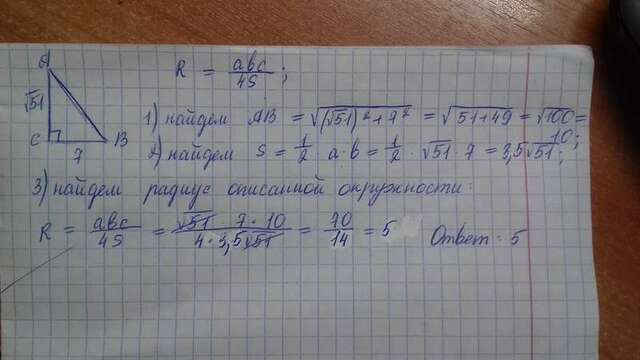 A
√51
C
7
B
R = abc/4S ;
1) найдем AB = √((√51)² + 7²) = √(51+49) = √100 =
10;
2) найдем S = 1/2 a·b = 1/2 · √51 · 7 = 3,5√51;
3) найдем радиус описанной окружности:
R = abc/4S = √51 · 7 · 10/4 · 3,5√51 = 70/14 = 5 Ответ: 5